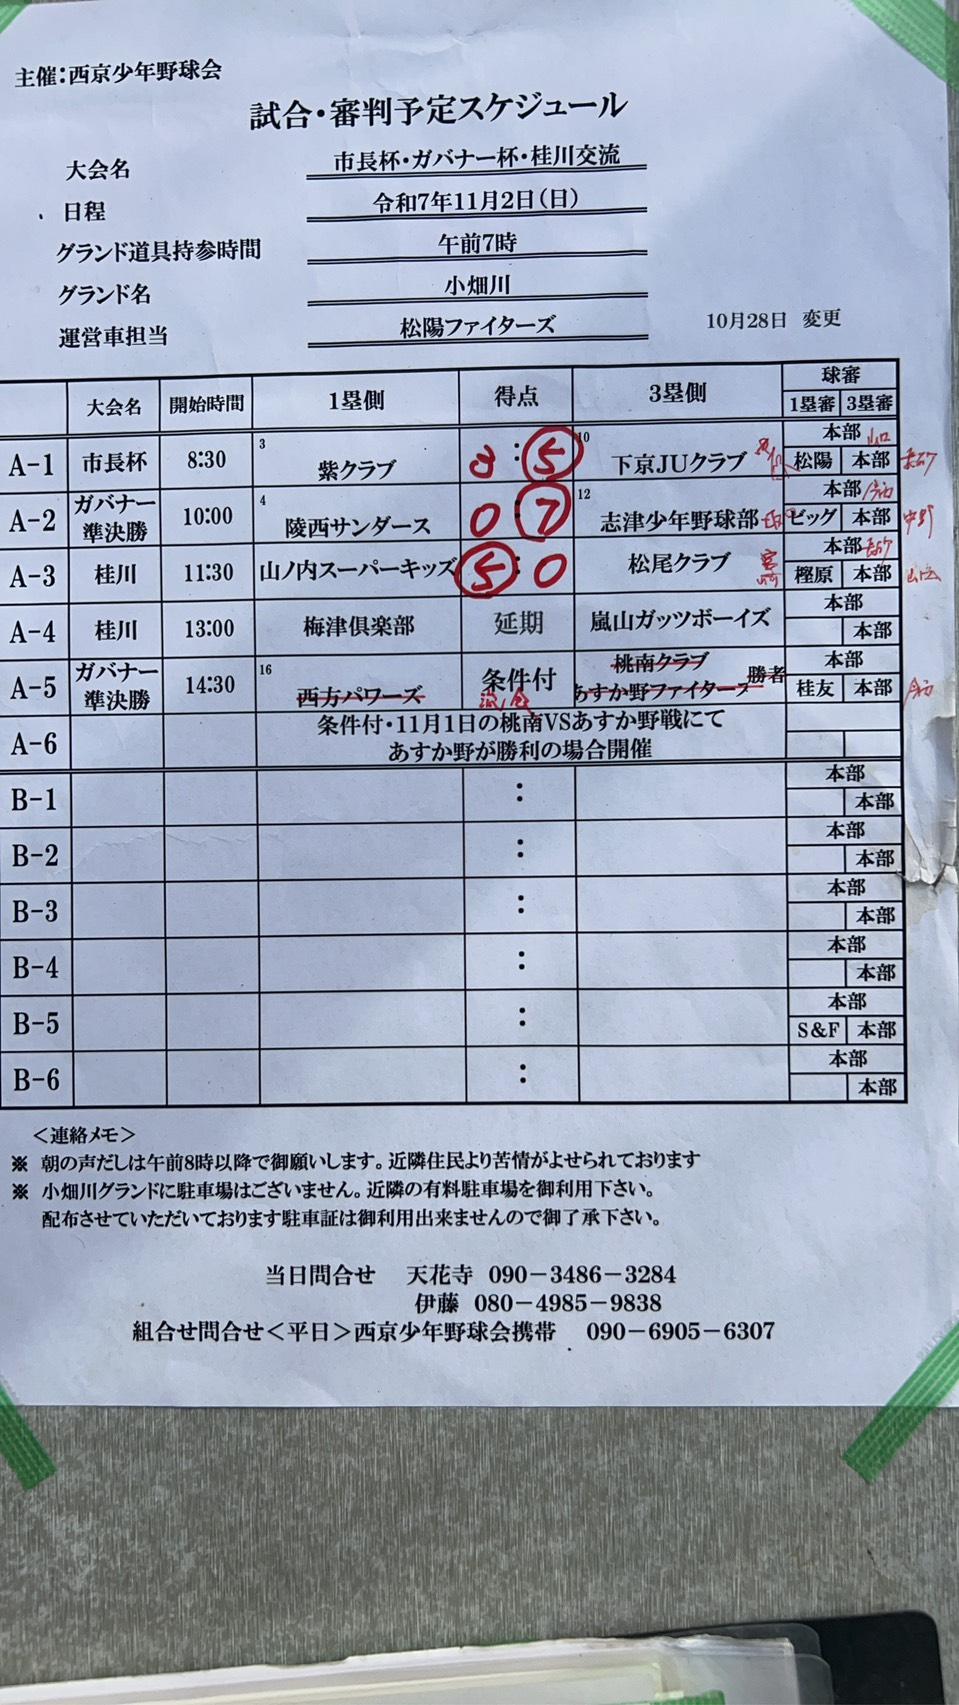 主催:西京少年野球会
試合・審判予定スケジュール
大会名 市長杯・ガバナー杯・桂川交流
日程 令和7年11月2日(日)
グランド道具持参時間 午前7時
グランド名 小畑川
運営車担当 松陽ファイターズ
10月28日 変更
大会名 開始時間 1塁側 得点 3塁側 球審
1塁審 3塁審
A-1 市長杯 8:30 3 紫クラブ 3 : 5 10 下京JUクラブ 本部 山口
松陽 本部
A-2 ガバナー準決勝 10:00 4 陵西サンダース 0 : 7 12 志津少年野球部 本部
ビッグ 本部 中野
A-3 桂川 11:30 山ノ内スーパーキッズ 5 : 0 松尾クラブ 本部
樫原 本部
A-4 桂川 13:00 梅津倶楽部 延期 嵐山ガッツボーイズ 本部
本部
A-5 ガバナー準決勝 14:30 16 西方パワーズ 条件付 桃南クラブ あすか野ファイターズ 勝者 本部
桂友 本部
A-6 条件付・11月1日の桃南VSあすか野戦にて
あすか野が勝利の場合開催
B-1 : 本部
本部
B-2 : 本部
本部
B-3 : 本部
本部
B-4 : 本部
本部
B-5 : 本部
S&F 本部
B-6 : 本部
本部
<連絡メモ>
※ 朝の声だしは午前8時以降で御願いします。近隣住民より苦情がよせられております
※ 小畑川グランドに駐車場はございません。近隣の有料駐車場を御利用下さい。
配布させていただいております駐車証は御利用出来ませんので御了承下さい。
当日問合せ 天花寺 090-3486-3284
伊藤 080-4985-9838
組合せ問合せ<平日>西京少年野球会携帯 090-6905-6307